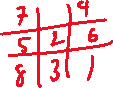 7 4
5 2 6
8 3 1